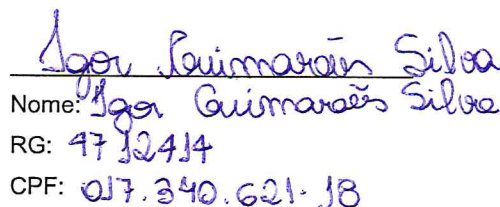 Igor Guimarães Silva
Nome: Igor Guimarães Silva
RG: 4712414
CPF: 017.340.621-18